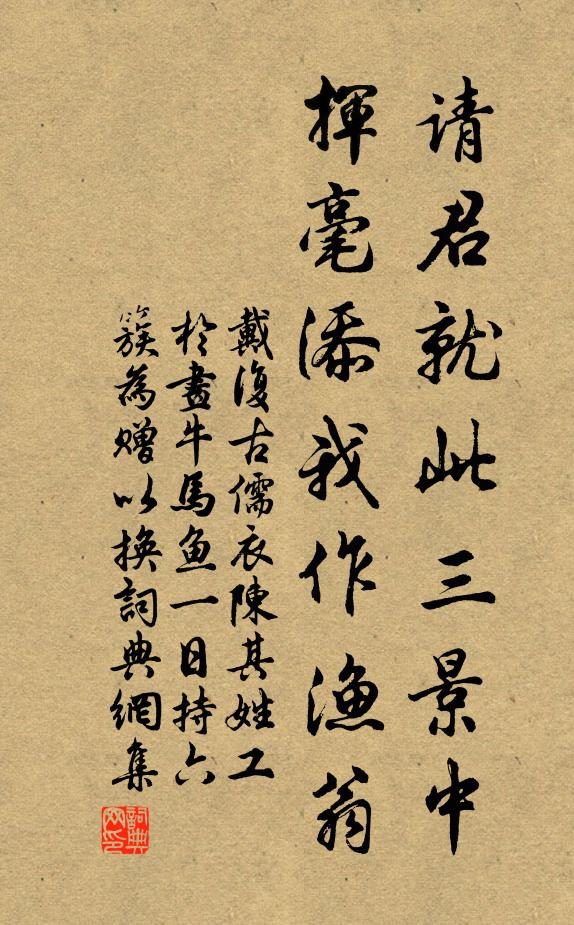 请君就此三景中
揮毫添我作漁翁
戴復古儒衣陳其姓工
於畫牛馬魚一日持六
簇為贈以換詞典網集
詞典网印